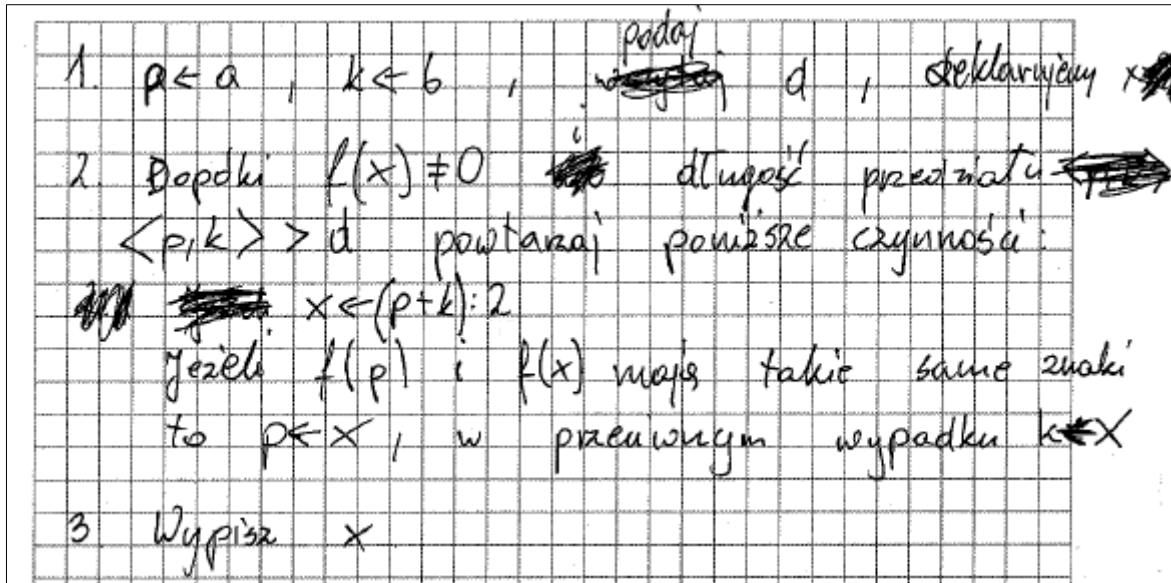 podaj
1. p ← a , k ← b , d , deklarujemy x
i
2. Dopóki f(x) ≠ 0 długość przedziału
<p,k> > d powtarzaj poniższe czynności:
x ← (p+k):2
Jeżeli f(p) i f(x) mają takie same znaki
to p ← x , w przeciwnym wypadku k ← x
3 Wypisz x